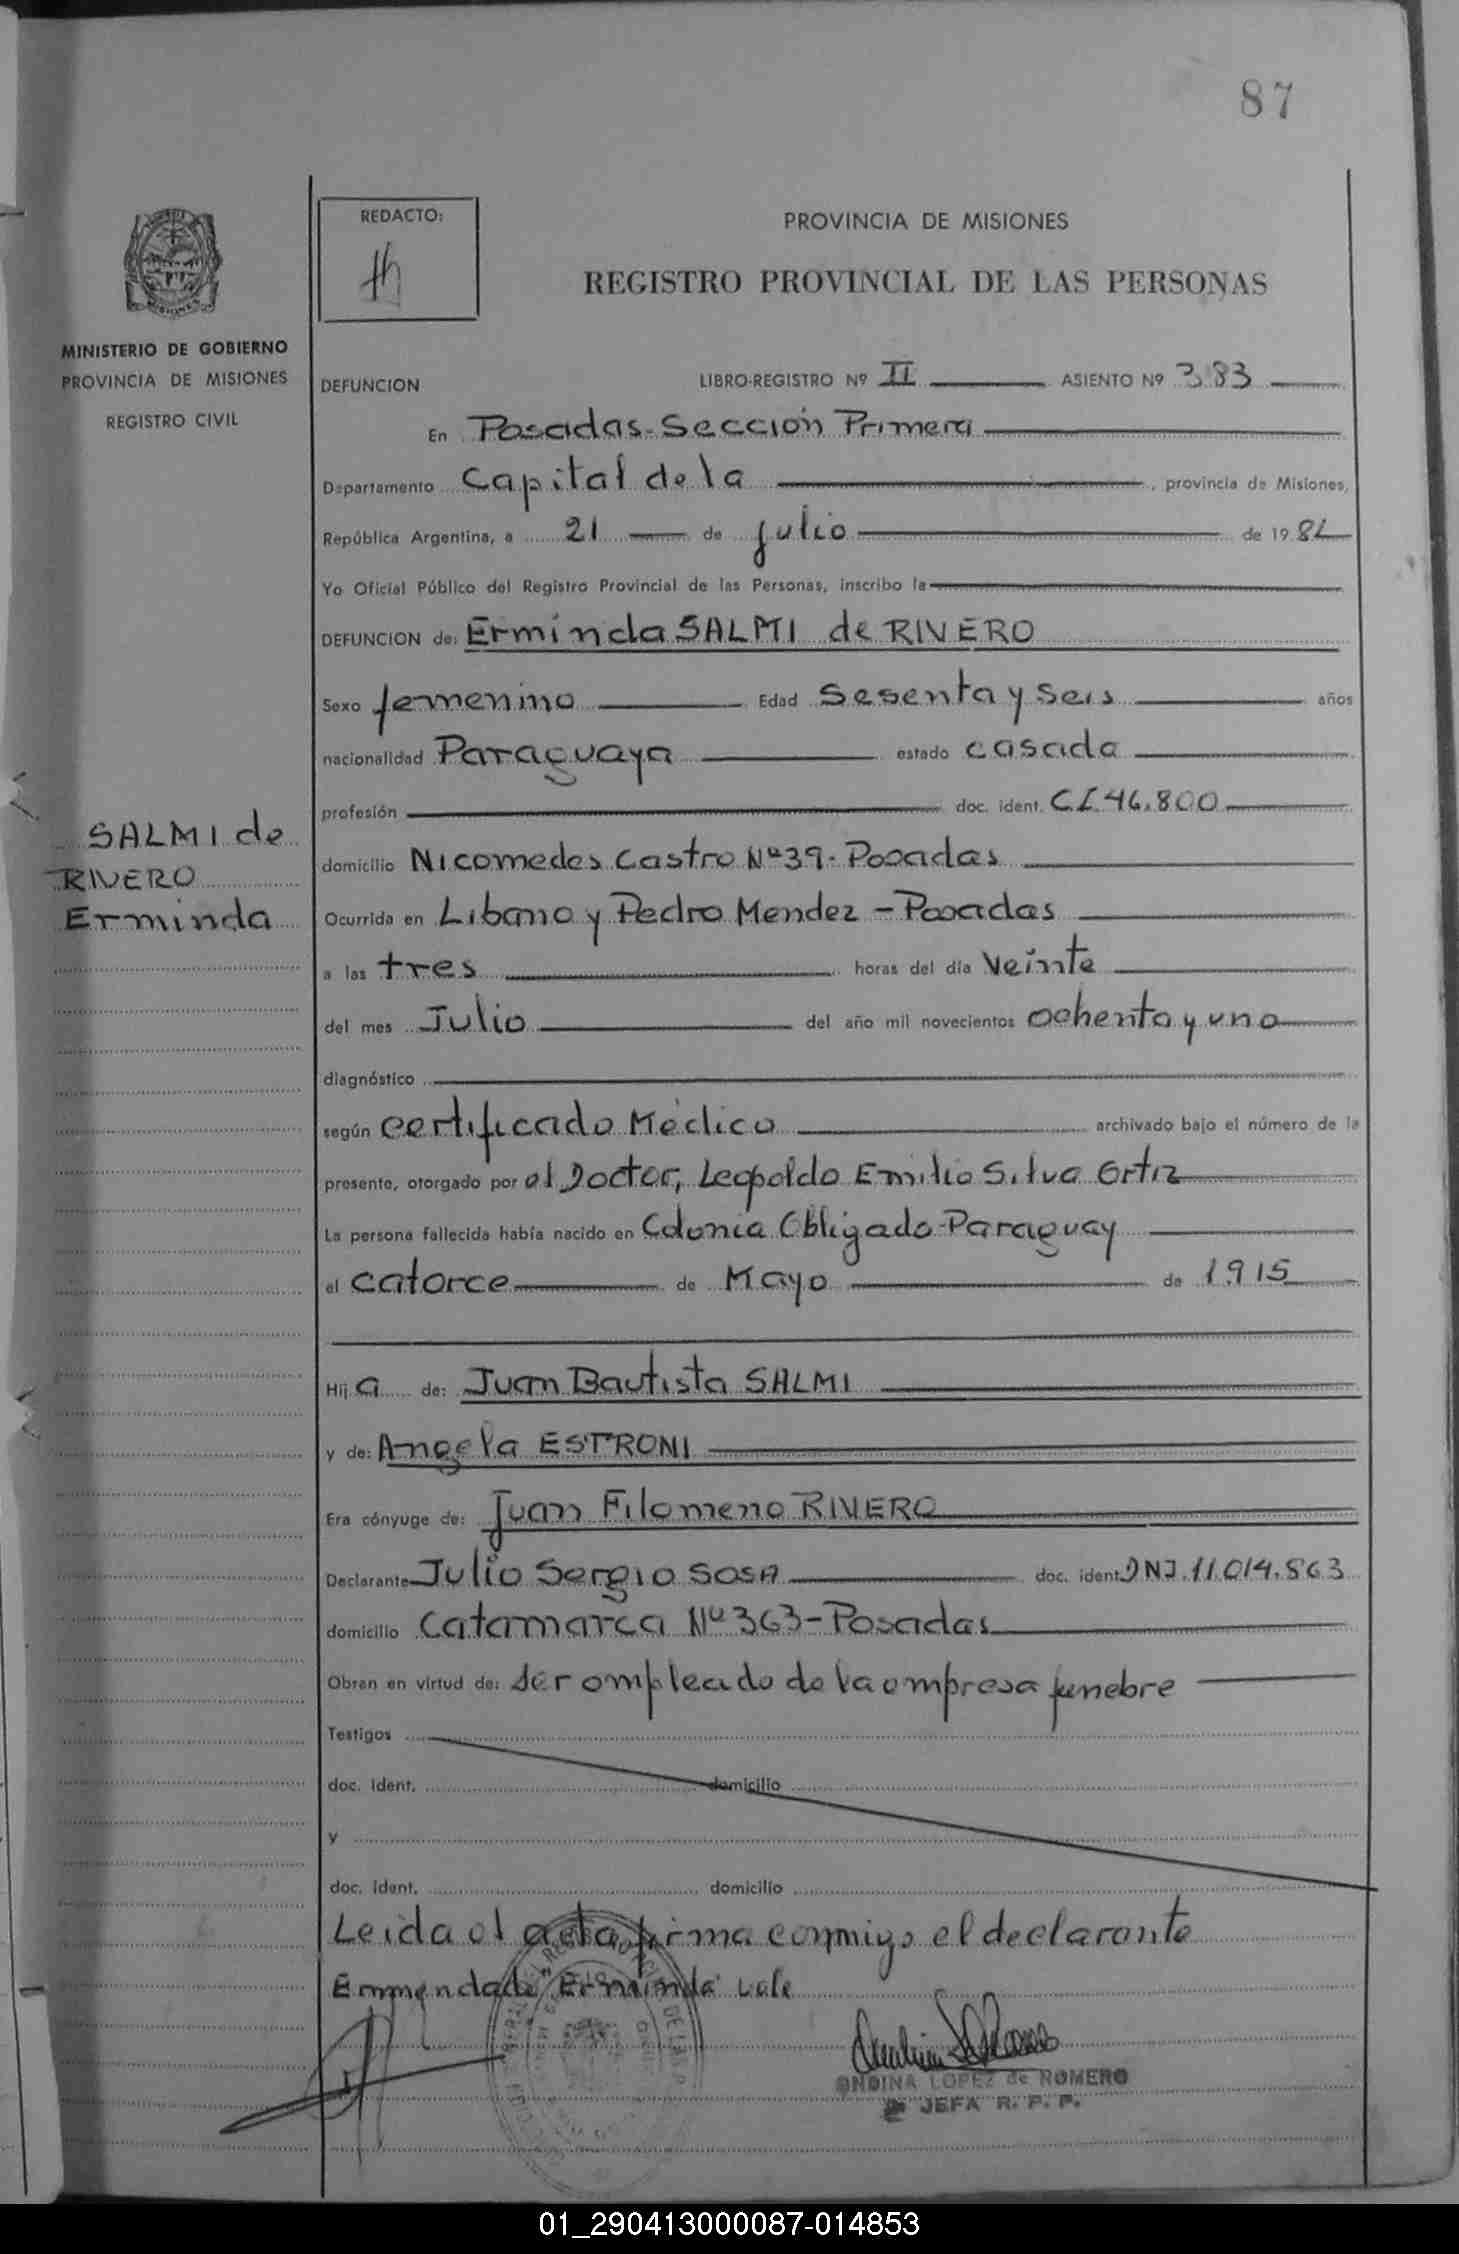 87
REDACTO:
PROVINCIA DE MISIONES
REGISTRO PROVINCIAL DE LAS PERSONAS
MINISTERIO DE GOBIERNO
PROVINCIA DE MISIONES
REGISTRO CIVIL
DEFUNCION LIBRO-REGISTRO Nº II ASIENTO Nº 383
En Posadas-Sección Primera
Departamento Capital de la , provincia de Misiones,
República Argentina, a 21 de julio de 198
Yo Oficial Público del Registro Provincial de las Personas, inscribo la
DEFUNCION de: Erminda SALMI de RIVERO
Sexo femenino Edad Sesenta y Seis años
nacionalidad Paraguaya estado casada
profesión doc. ident. C.I. 46.800
SALMI de
RIVERO
Erminda
domicilio Nicomedes Castro Nº39-Posadas
Ocurrida en Libano y Pedro Mendez-Posadas
a las tres horas del día Veinte
del mes Julio del año mil novecientos ochenta y uno
diagnóstico
según certificado Médico archivado bajo el número de la
presente, otorgado por el Doctor, Leopoldo Emilio Silva Ortiz
La persona fallecida había nacido en Colonia Obligado-Paraguay
el catorce de Mayo de 1915
Hij a de: Juan Bautista SALMI
y de: Angela ESTRONI
Era cónyuge de: Juan Filomeno RIVERO
Declarante Julio Sergio SOSA doc. ident. DNI. 11.014.863
domicilio Catamarca Nº 363-Posadas
Obran en virtud de: ser empleado de la empresa funebre
Testigos
doc. ident. domicilio
y
doc. ident. domicilio
Leida el acta firma conmigo el declarante
Enmendado "Erminda" vale
ONDINA LOPEZ de ROMERO
JEFA R. P. P.
01_290413000087-014853